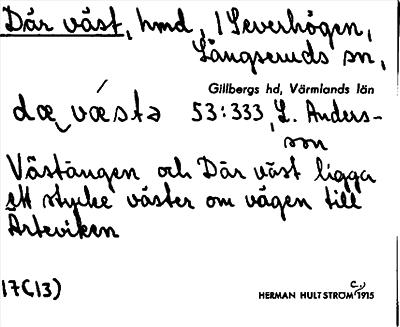 Där väst, hmd, / Severhögen,
Långseruds sn,
Gillbergs hd, Värmlands län
dæ væstə 53:333, L. Anders-
son
Västängen och Där väst ligga
ett stycke väster om vägen till
Årteviken
17(13) HERMAN HULTSTRÖM 1915